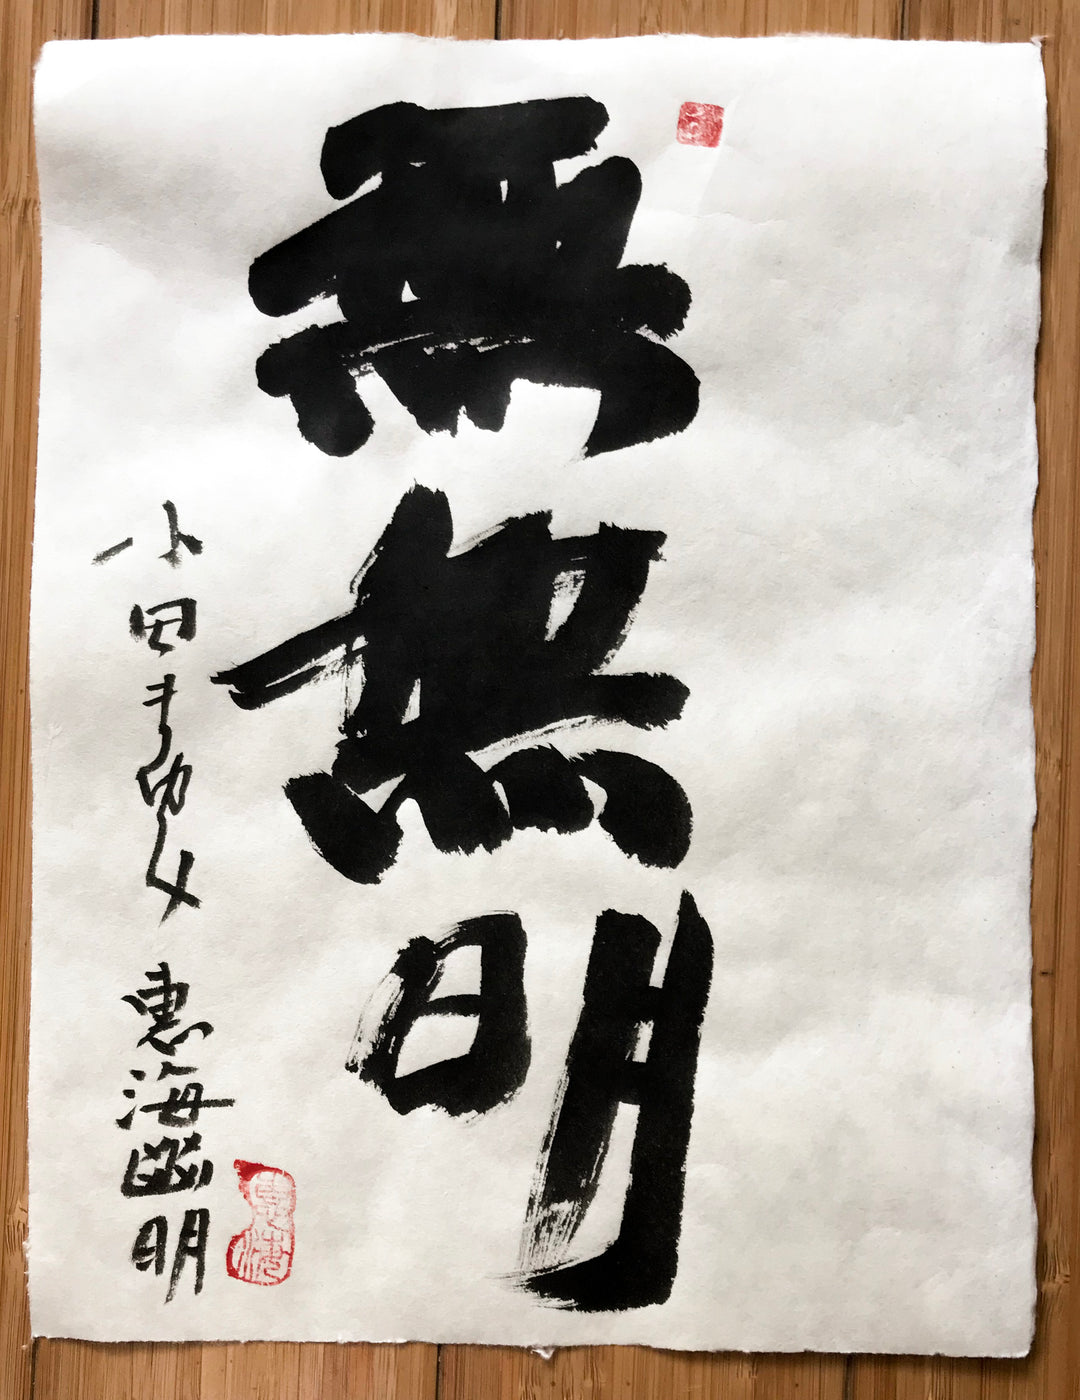 無無明
小田まゆみ 惠海幽明